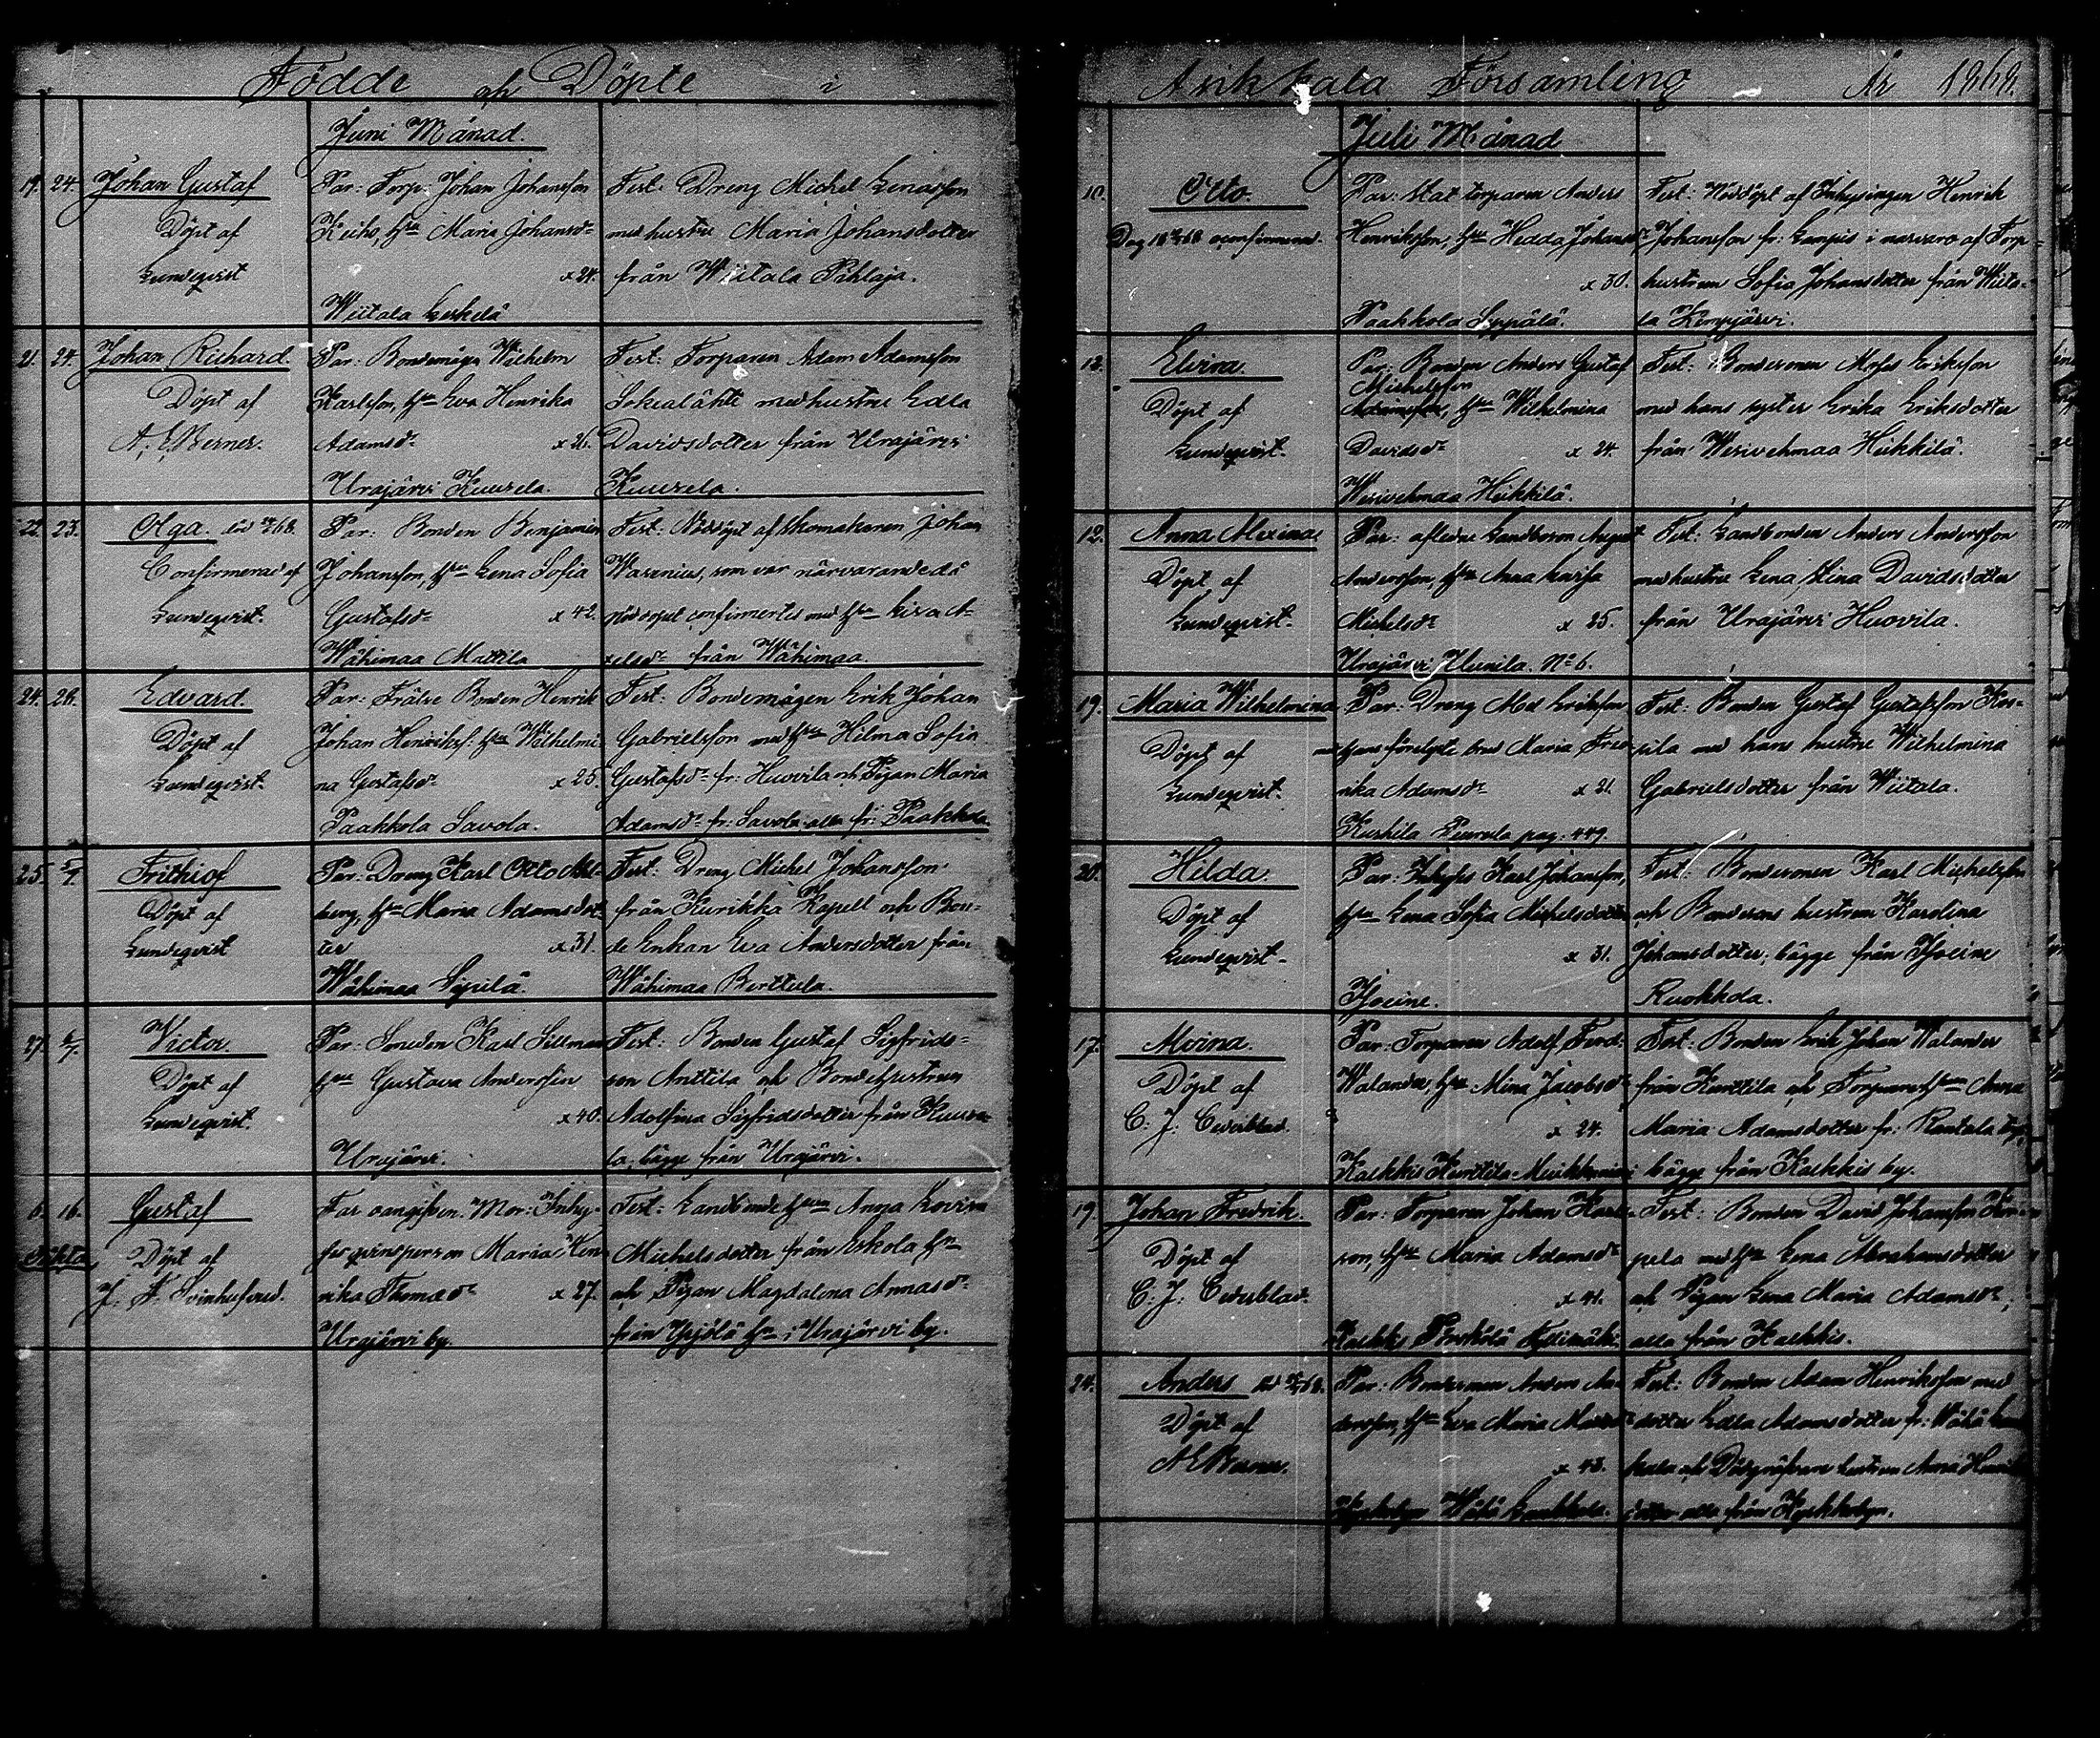 Födde och Döpte i
Juni Månad.
19. 24. Johan Gustaf
Döpt af
Lundeqvist
Par: Torp: Johan Johansson
Keiho, hu Maria Johansdr
x 24.
Wiitala Leskelä
Test: Dreng Michel Enasson
med hustru Maria Johansdotter
från Wiitala Pihlaja.
21. 24. Johan Richard.
Döpt af
A. E. Berner.
Par: Bondemågen Wilhelm
Karlsson, hu Eva Henrika
Adamsdr x 26.
Urajärvi Kuusela.
Test: Torparen Adam Adamsson
med hustru Edla
Davidsdotter från Urajärvi
Kuusela.
22. 23. Olga.
Confirmerad af
Lundeqvist.
Par: Bonden Benjamin
Johansson, hu Lena Sofia
Gustafsdr x 42.
Wähimaa Mattila
Test: Nöddöpt af Skomakaren Johan
Wasenius, som var närvarande då
nöddopet confirmertes med hu Lisa A-
från Wähimaa.
24. 28. Edvard.
Döpt af
Lundeqvist.
Par: Frälse Bonden Henrik
Johan Henrikss: hu Wilhelmi-
na Gustafsdr x 25.
Paakkola Savola.
Test: Bondemågen Erik Johan
Gabrielsson med hu Hilma Sofia
Gustafsdr fr: Huovila och Pigan Maria
Adamsdr fr: Savola alla fr: Paakkola.
25. 5/7. Frithiof
Döpt af
Lundeqvist
Par: Dreng Karl Otto
berg, hu Maria Adamsdot-
ter x 31.
Wähimaa Sipilä.
Test: Dreng Michel Johansson
från Kurikka Kapell och Bon-
de Enkan Eva Andersdotter från
Wähimaa Perttula.
27. 5/7. Victor.
Döpt af
Lundeqvist.
Par: Smeden Karl Sillman
hu Gustava Andersdr
x 40.
Urajärvi.
Test: Bonden Gustaf Sigfrids-
son Anttila och Bondehustrun
Adolfina Sigfridsdotter från Kuuse-
la, bägge från Urajärvi.
6. 16. Gustaf
Oäkta Döpt af
J. F. Svinhufvud.
Far oangifven. Mor: Inhy-
ses qvinsperson Maria Hen-
rika Thomasdr x 27.
Urajärvi by.
Test: Landbonde hun Anna Lovisa
Michelsdotter från Eskola hn
och Pigan Magdalena Annasdr
från hn i Urajärvi by.
Asikkala Församling År 1868.
Juli Månad
10. Otto.
Par: Stat torparen Anders
Henriksson, hu Hedda Johansdr
x 30.
Paakkola Seppälä.
Test: Nöddöpt af Inhysingen Henrik
Johansson fr: Lempis i narvaro af Torp-
hustrun Sofia Johansdotter från Wiita-
la
12. Elvina.
Döpt af
Lundeqvist.
Par: Bonden Anders Gustaf
Michelsson
hu Wilhelmina
Davidsdr x 24.
Wesivehmaa Heikkilä.
Test: Bondesonen Moses Eriksson
med hans syster Erika Eriksdotter
från Wesivehmaa Heikkilä.
12. Anna Alexina.
Döpt af
Lundeqvist.
Par: afledne Landboson August
Andersson, hu Anna Lovisa
Michelsdr x 25.
Urajärvi Uunila. No 6.
Test: Landbonden Anders Andersson
med hustru Lena Stina Davidsdotter
från Urajärvi Huovila.
19. Maria Wilhelmina
Döpt af
Lundeqvist.
Par: Dreng Moses Eriksson
med hans förelyste brud Maria Fred-
rika Adamsdr x 21.
Kurhila Peurala pag: 449.
Test: Bonden Gustaf Gustafsson Kos-
sila med hans hustru Wilhelmina
Gabrielsdotter från Wiitala.
20. Hilda.
Döpt af
Lundeqvist.
Par: Inhyses Karl Johansson,
hu Lena Sofia Michelsdotter
x 31.
Hoeine.
Test: Bondesonen Karl Michelsson
och Bondesons hustrun Karolina
Johansdotter, bägge från Hoeine
Ruokkola.
17. Alvina.
Döpt af
C. J. Cederblad.
Par: Torparen Adolf Ferd:
Walander, hu Mina Jacobsdr
x 24.
Kalkkis Kurttila
Test: Bonden Erik Johan Walander
från Kurttila och Torpare hun Anna
Maria Adamsdotter fr: Rantala torp,
bägge från Kalkkis by.
19. Johan Fredrik.
Döpt af
C. J. Cederblad.
Par: Torparen Johan Karls-
son, hu Maria Adamsdr
x 41.
Kalkkis
Test: Bonden David Johansson
med hu Lena Abrahamsdotter
och Pigan Lena Maria Adamsdr;
alla från Kalkkis.
24. Anders
Döpt af
A E Berner.
Par: Bondesonen Anders An-
dersson, hu Eva Maria
x 43.
Kyrkobyn Wähä
Test: Bonden Adam Henriksson med
dotter Edla Adamsdotter fr: Wähä
och Dödgräfvare hustrun Anna Henriks-
dotter alla från Kyrkobyn.